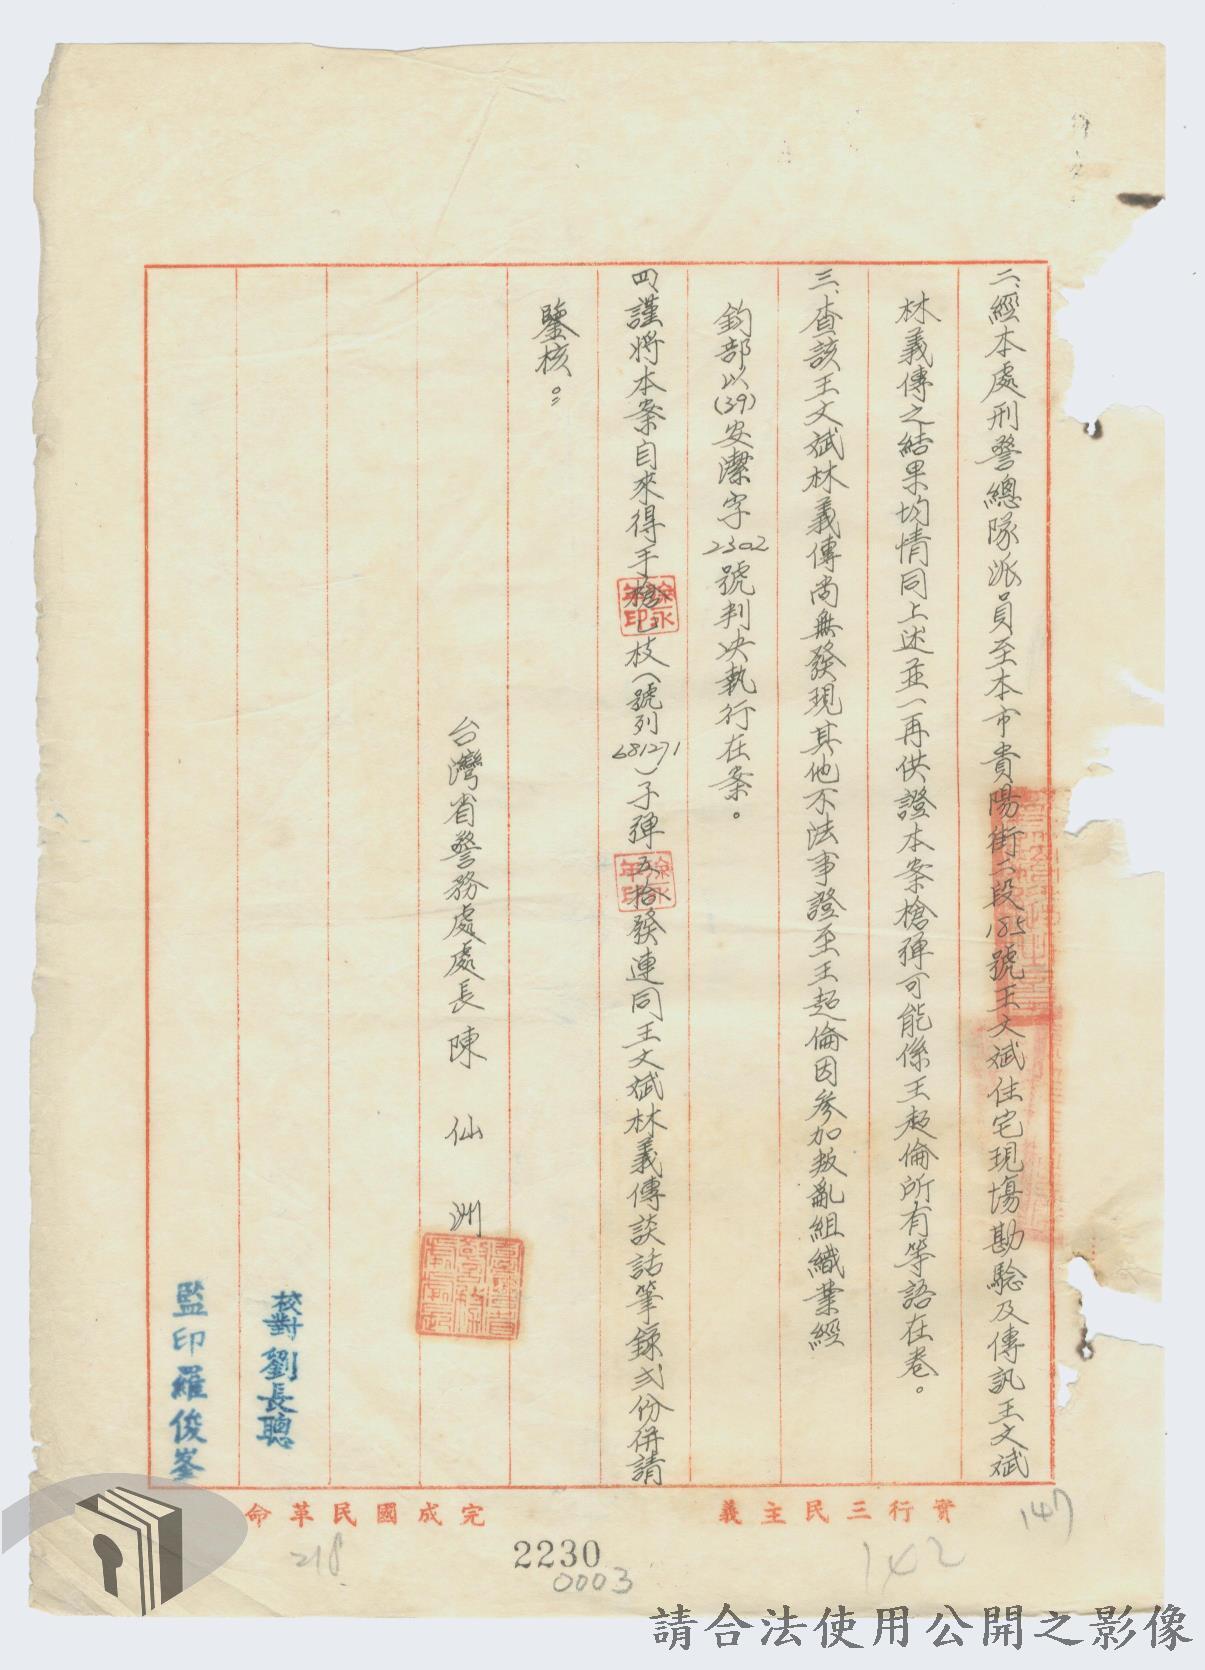 二、經本處刑警總隊派員至本市貴陽街二段185號王文斌住宅現場勘驗及傳訊王文斌
林義傳之結果均情同上述並一再供證本案槍彈可能係王超倫所有等語在卷。
三、查該王文斌林義傳尚無發現其他不法事證至王超倫因參加叛亂組織業經
鈞部以(39)安潔字2302號判決執行在案。
四、謹將本案自來得手槍乙枝(號列681271)子彈五拾發連同王文斌林義傳談話筆錄弍份併請
鑒核。
台灣省警務處處長陳仙洲
校對劉長聰
監印羅俊峯
實行三民主義
完成國民革命
147
142
218
2230
0003
請合法使用公開之影像